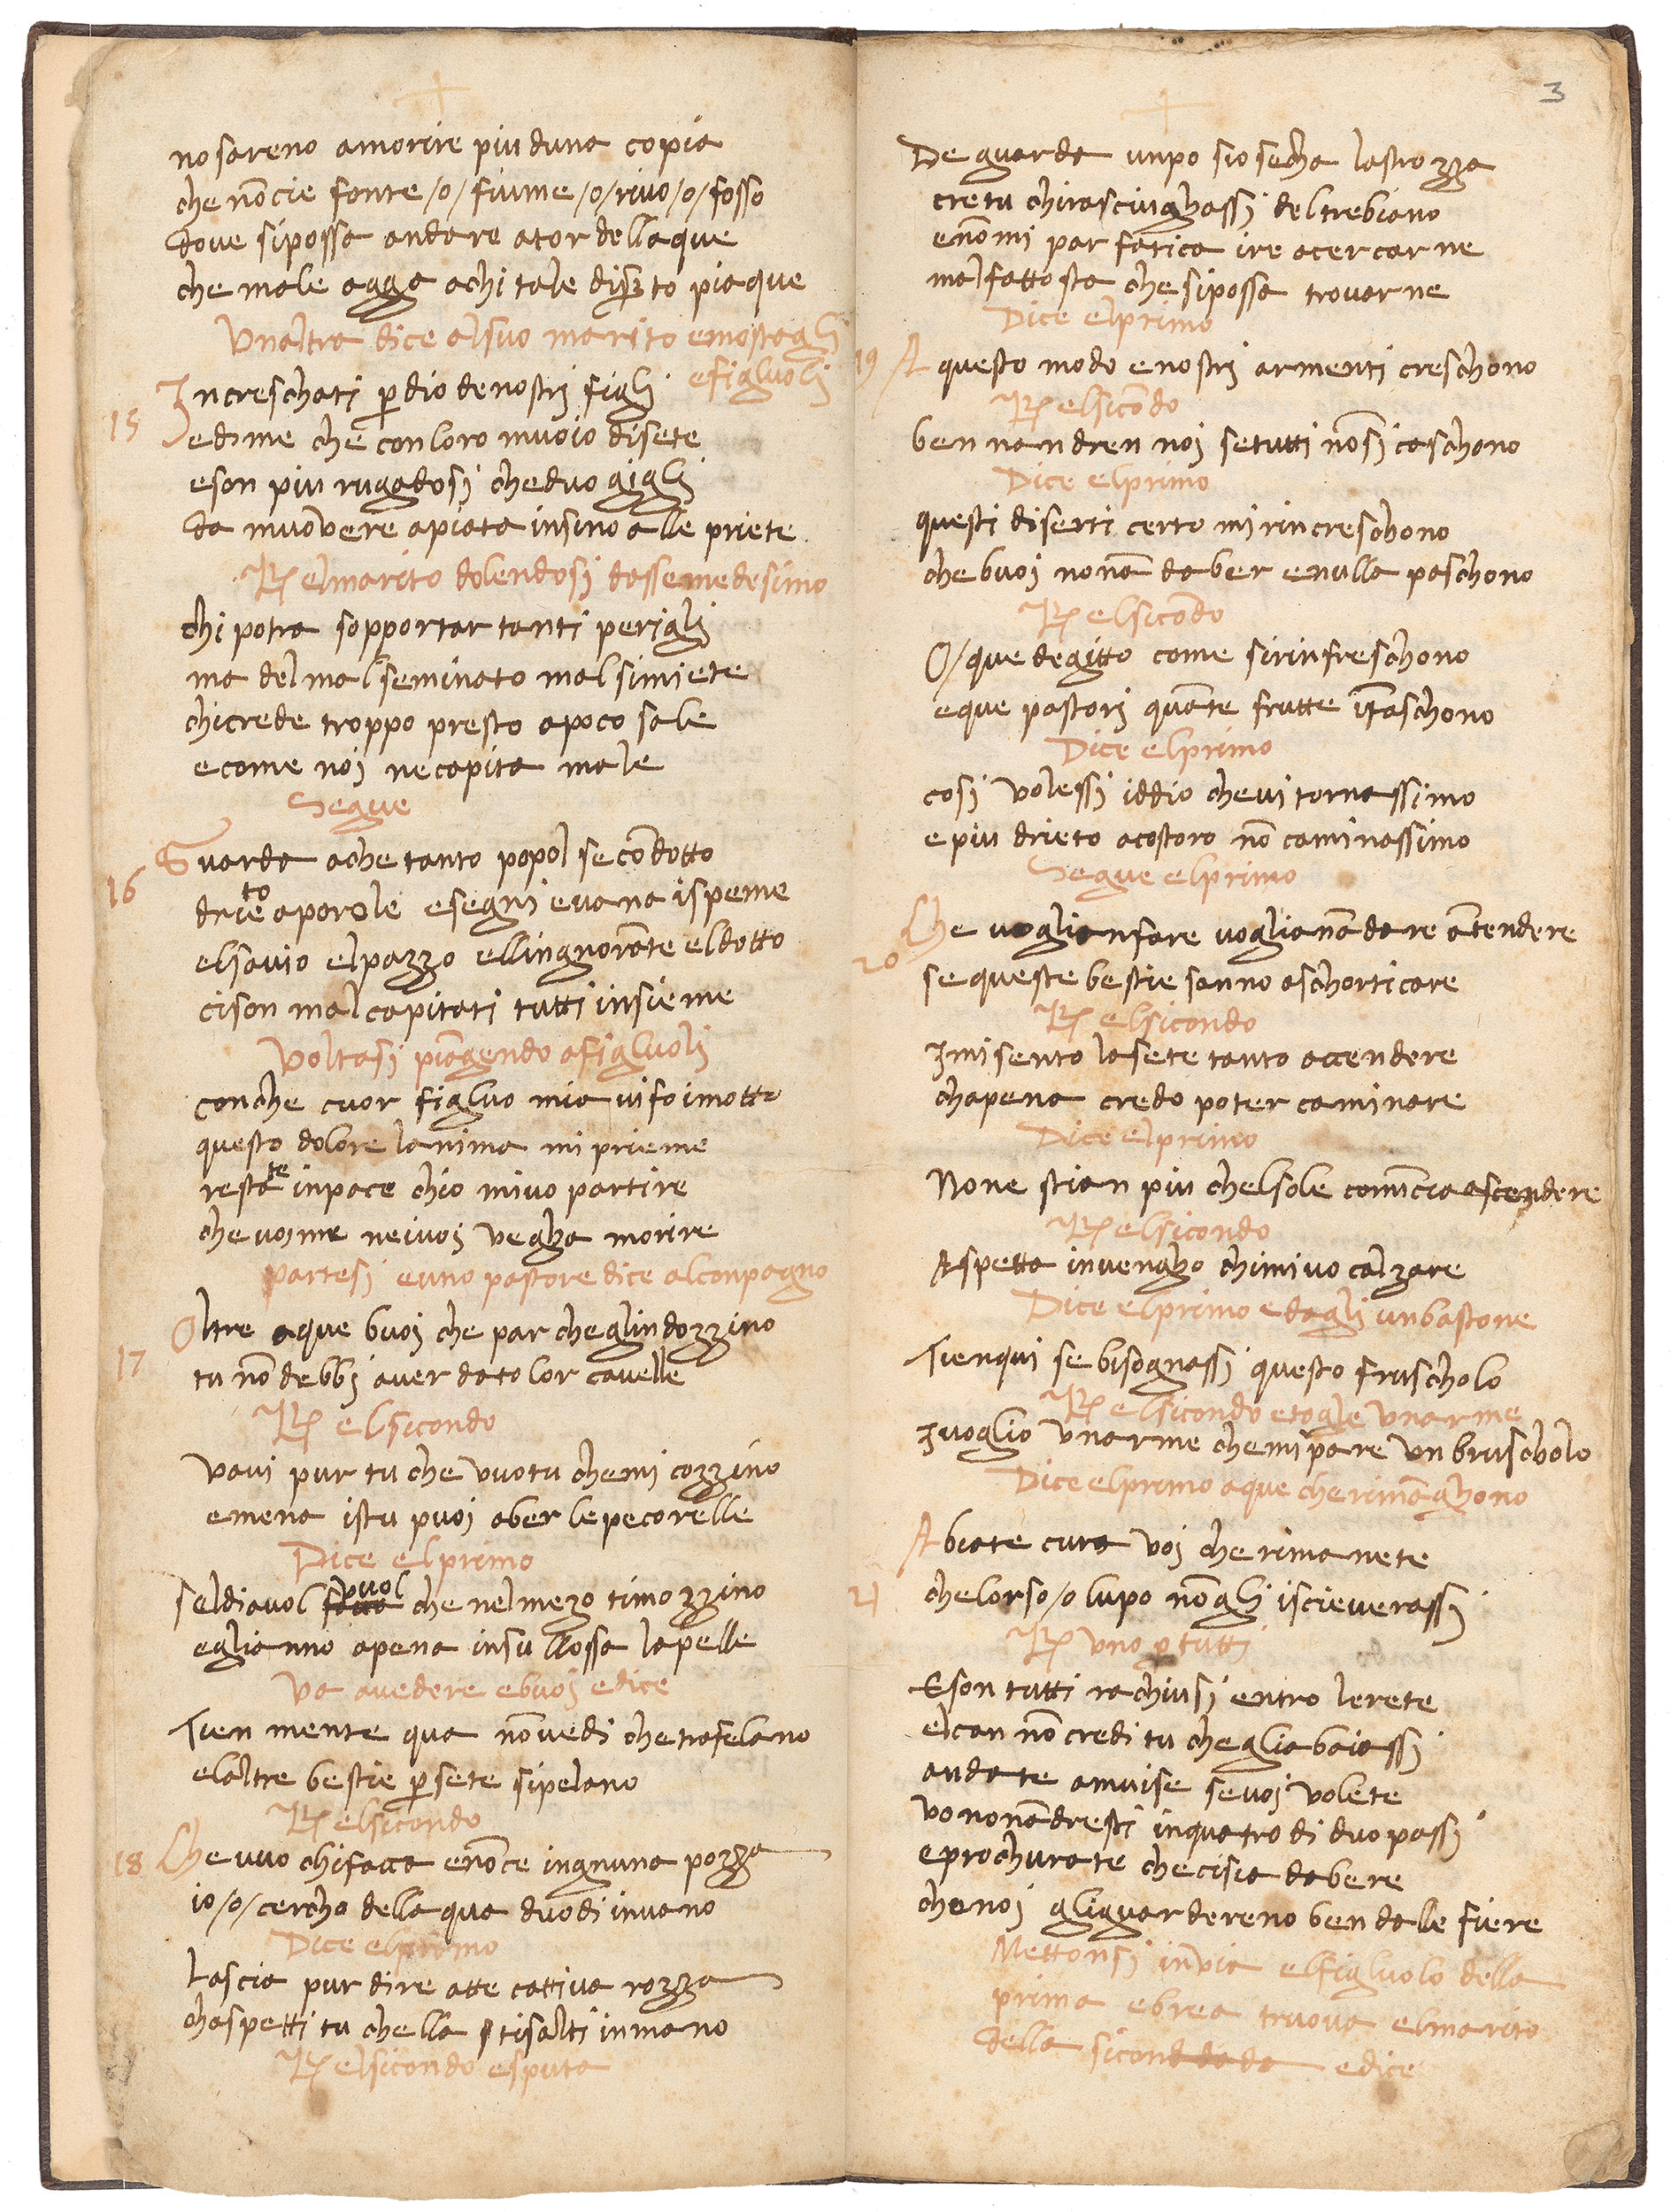 no sareno amorire piu duna copia
che nōcie fonte /o/ fiume /o/ rivo /o/ fosso
dove sipossa andare ator dellaque
che male agga achi tale disto piaque
Unaltra dice alsuo marito emostragli
efigluoli
15
Increschati p dio denostrj figlj
edime che conloro muoio disete
eson piu rugadosj cheduo giglj
da muovere apiata insino alle priete
R elmarito dolendosj dassemedesimo
chi potra sopportar tanti periglj
ma del mal seminato mal simiete
chicrede troppo presto apoco sale
ecome noj necapita male
Segue
16
Guarda ache tanto popol se cōdotto
drieto aparole esegni evana ispeme
elsavio elpazzo ellingnorāte eldotto
cison mal capitati tutti insieme
Voltasj piāgendo afigluolj
conche cuor figluo mia vifo imotto
questo dolore lanima mi prieme
restate inpace chio mivo partire
che vojme neivoj vegha morire
partesj euno pastore dice alconpagno
17
Oltre aque buoj che par cheglindozzino
tu nō debbj aver dato lor cavelle
R elsicondo
vavi pur tu che vuotu chemi cozzino
emena istu puoj aber lepecorelle
Dice elprimo
seldiavol vuol che nelmezo timozzino
eglianno apena insullossa lapelle
va avedere ebuoj edice
Tien mente qua nōvedi che trafelano
elaltre bestie p sete sipelano
R elsicondo
18
Che vuo chifacca enōce ingnuna pozza
io /o/ cercha della qua duodi invano
Dice elprimo
Lascia pur dire atte cattiva rozza
chaspetti tu chella tisalti inmano
R elsicondo esputa
3
De guarda unpo sio secha lastrozza
cretu chirasciughassj deltrebiano
enōmi par fatica ire acercarne
malfatto sta chesipossa trovarne
Dice elprimo
19
A questo modo enostrj armenti creschono
R elsicōdo
ben nandren noj setutti nōsj caschono
Dice elprimo
questi diserti certo mirincreschono
chebuoj nonā daber enulla paschono
R elsicōdo
O/ que degitto come sirinfreschono
eque pastorj quāte frutte itaschono
Dice elprimo
cosj volessj iddio chevi tornassimo
epiu drieto acostoro nō caminassimo
Segue elprimo
20
Che voglianfare voglianādare ātendere
se queste bestie sanno aschorticare
R elsicondo
Imisento lasete tanto accendere
chapena credo poter caminare
Dice elprimo
None stian piu chelsole comīcia ascendere
R elsicondo
Aspetta invengho chimivo calzare
Dice elprimo edagli unbastone
Tienqui sebisognassj questo fruscholo
R elsicondo etogle unarme
Ivoglio unarme chemipare un bruscholo
Dice elprimo aque che rimāghono
21
Abiate cura voj che rimanete
chelorso /o lupo nōglj iscieverassj
R uno p tutti
Eson tutti rachiusj entro lerete
elcan nō credi tu chegliabaiassj
andate amuise sevoj volete
vo nonādresti inquatro di duo passj
eprochurate checisia dabere
chenoj gliguardereno ben dale fiere
Mettonsj invia elfigluolo della
prima ebrea truova elmarito
della siconda edice